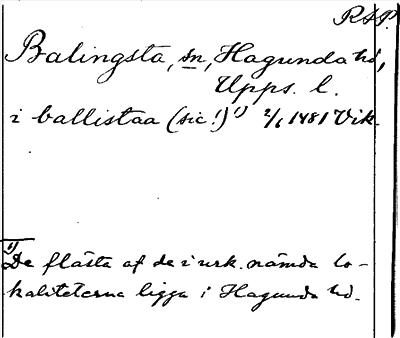 RAP.
Balingsta, sn, Hagunda hd,
Upps. l.
i ballistaa (sic!)¹⁾ 2/6 1481 Vik.
¹⁾
De flästa af de i urk. nämda lo-
kaliteterna ligga i Hagunda hd.